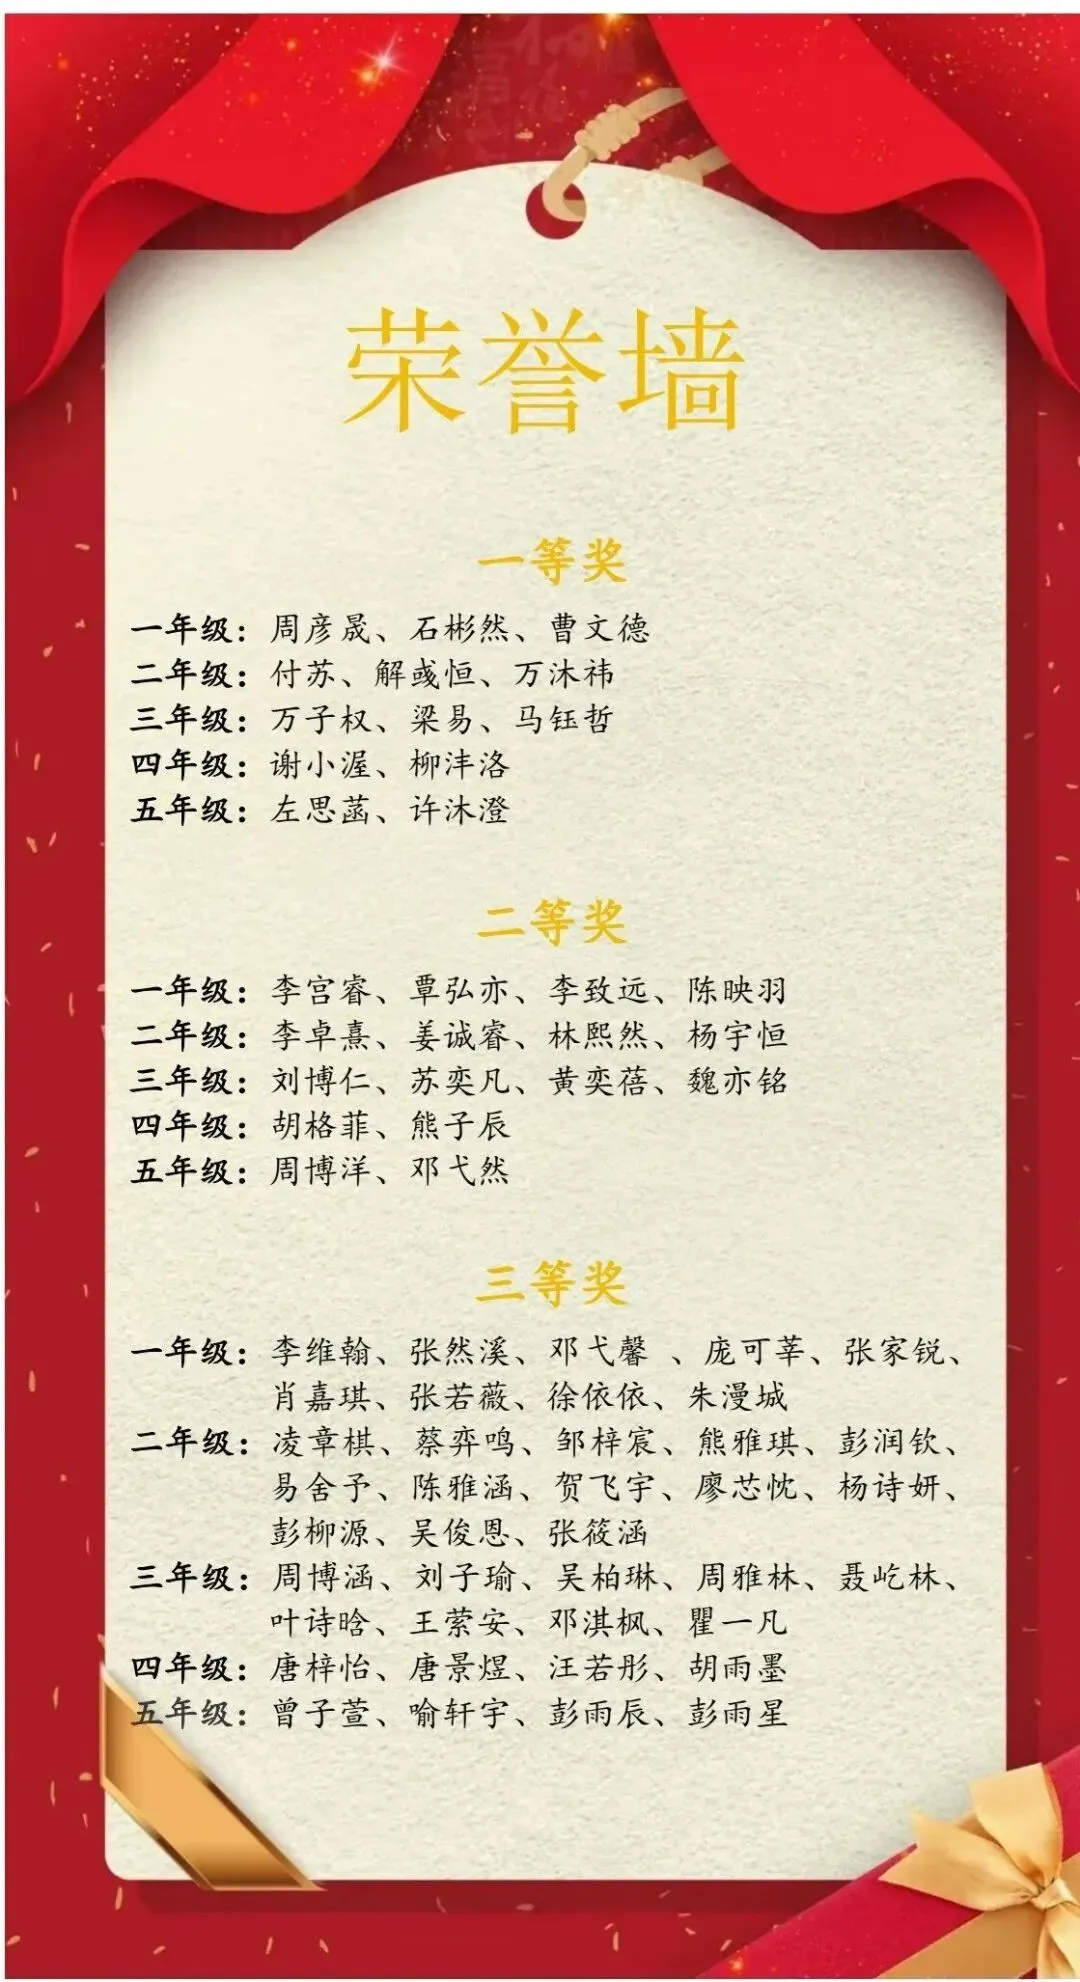 荣誉墙
一等奖
一年级：周彦晟、石彬然、曹文德
二年级：付苏、解彧恒、万沐祎
三年级：万子权、梁易、马钰哲
四年级：谢小渥、柳沣洛
五年级：左思菡、许沐澄
二等奖
一年级：李宫睿、覃弘亦、李致远、陈映羽
二年级：李卓熹、姜诚睿、林熙然、杨宇恒
三年级：刘博仁、苏奕凡、黄奕蓓、魏亦铭
四年级：胡格菲、熊子辰
五年级：周博洋、邓弋然
三等奖
一年级：李维翰、张然溪、邓弋馨 、庞可莘、张家锐、
肖嘉琪、张若薇、徐依依、朱漫城
二年级：凌章棋、蔡弈鸣、邹梓宸、熊雅琪、彭润钦、
易舍予、陈雅涵、贺飞宇、廖芯忱、杨诗妍、
彭柳源、吴俊恩、张筱涵
三年级：周博涵、刘子瑜、吴柏琳、周雅林、聂屹林、
叶诗晗、王萦安、邓淇枫、瞿一凡
四年级：唐梓怡、唐景煜、汪若彤、胡雨墨
五年级：曾子萱、喻轩宇、彭雨辰、彭雨星